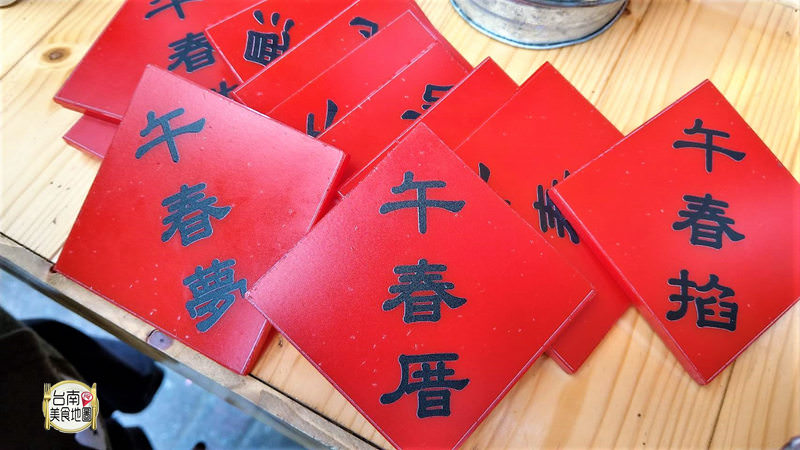 午春
午春夢
午春厝
午春掐
台南
美食地圖